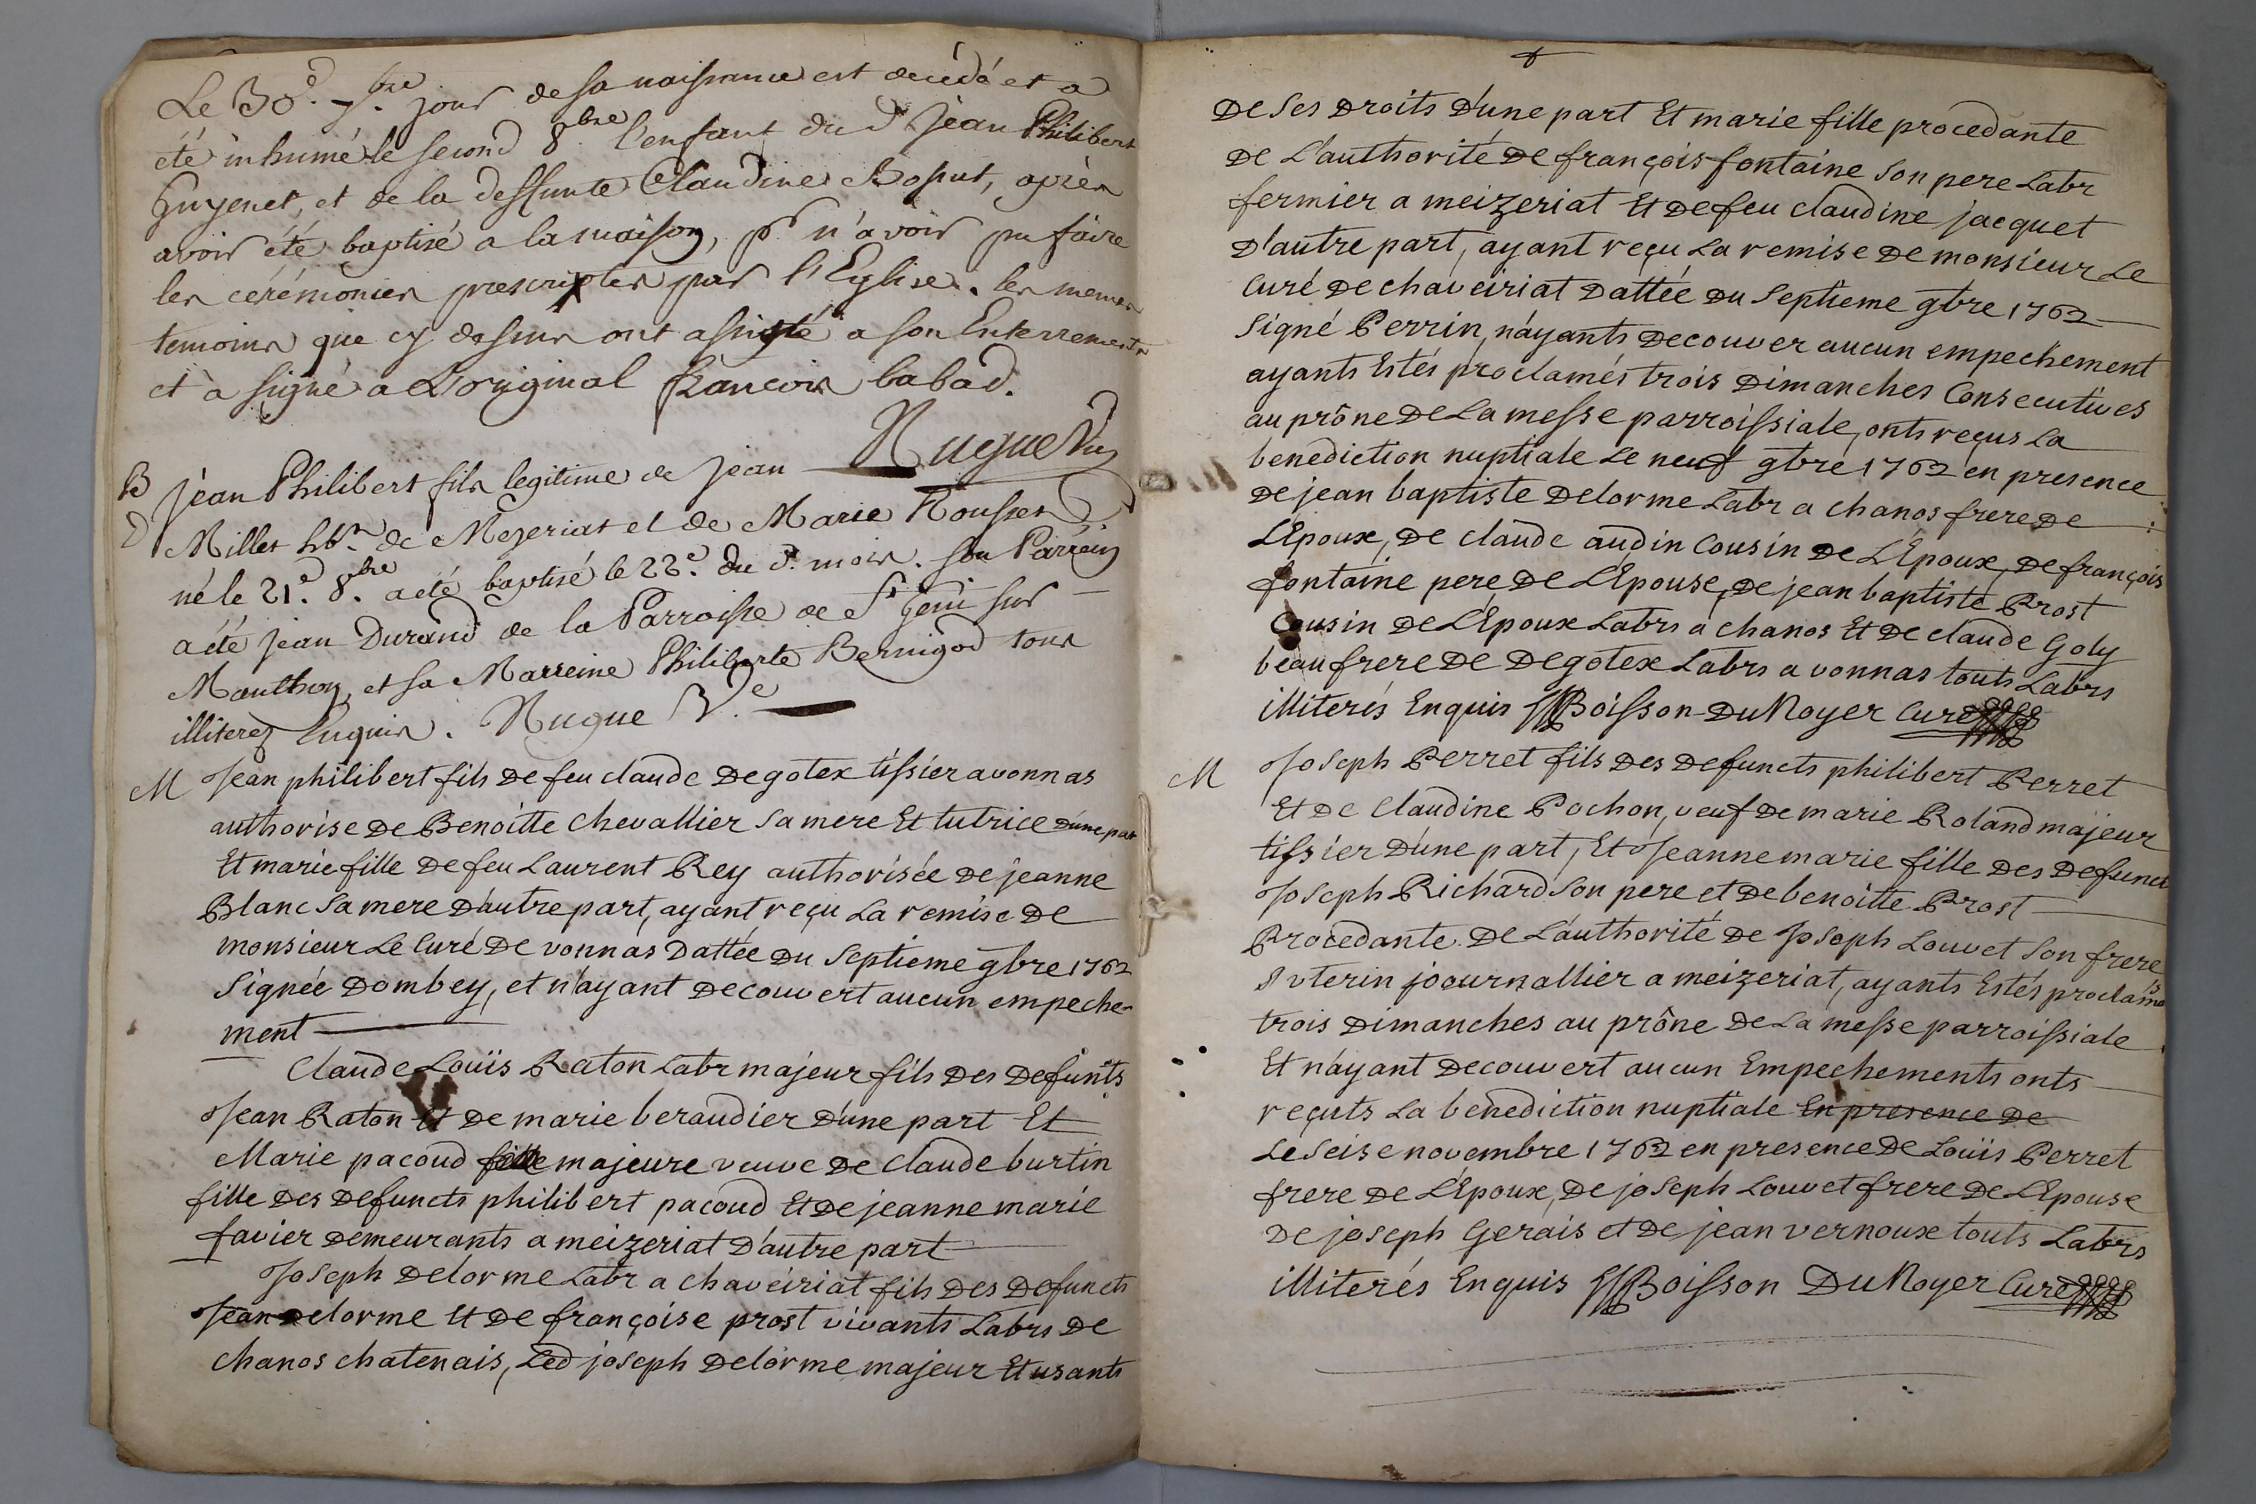 Le 30e. 7bre jour de sa naissance est decédé et a
été inhumé le second 8bre l'enfant du d. Jean Philibert
Guyenet, et de la deffunte Claudine, après
avoir été baptisé a la maison, pr n'avoir pu faire
les cérémonies prescriptes par l'Eglise. les memes
temoins que cy dessus ont assisté a son Enterrement
et a signé a L'original françois babad.
Nugue Vic
B Jean Philibert fils legitime de Jean
Millet hbt. de Mezeriat et de Marie Rousset
né le 21.e 8.bre a été baptisé le 22.e du d. mois. son Parrein
a été Jean Durand de la Parroisse de St jeni sur
Manthon, et sa Marreine Philiberte Bernigod tous
illiterez Enquis. Nugue V.e
M Jean philibert fils De feu claude Degotex tissier a vonnas
authorise De Benoitte chevallier sa mere Et tutrice d'une part
Et marie fille De feu Laurent Rey authorisée De jeanne
Blanc sa mere D'autre part, ayant reçu La remise De
monsieur Le Curé De vonnas Dattée Du septieme 9bre 1762
signée Dombey, et n'ayant Decouvert aucun empeche-
ment
Claude Loüis Raton Labr majeur fils Des Defunts
Jean Raton Et De marie beraudier D'une part Et
Marie pacoud fille majeure veuve De claude burtin
fille Des Defuncts philibert pacoud Et De jeanne marie
favier Demeurants a meizeriat D'autre part
Joseph Delorme Labr a chaveiriat fils Des Defuncts
Jean Delorme Et De françoise prost vivants Labrs De
chanos chatenais, Led joseph Delorme majeur Et usants
De ses Droits D'une part Et marie fille procedante
De L'authorité De françois fontaine son pere Labr
fermier a meizeriat Et De feu claudine jacquet
D'autre part, ayant reçu La remise De monsieur Le
Curé De chaveiriat Dattée Du septieme 9bre 1762
signé Perrin, n'ayants Decouver aucun empechement
ayants Estés proclamés trois Dimanches Consecutives
au prône De La messe parroissiale, onts reçus La
benediction nuptiale Le neuf 9bre 1762 en presence
De jean baptiste Delorme Labr a chanos frere De
L'Epoux, De claude audin Cousin De L'Epoux, De françois
fontaine pere De L'Epouse, De jean baptiste Prost
Cousin De L'Epoux Labrs a chanos Et De claude Goly
beau frere De Degotex Labrs a vonnas touts Labrs
illiterés Enquis Boisson DuNoyer Curé
M Joseph Perret fils Des Defuncts philibert Perret
Et De Claudine Pochon, veuf De marie Roland majeur
tissier D'une part, Et Jeanne marie fille Des Defunct
Joseph Richard son pere et De benoitte Prost
Procedante De L'authorité De Joseph Louvet son frere
uterin joournallier a meizeriat, ayants Estés proclamés
trois Dimanches au prône De La messe parroissiale
Et n'ayant Decouvert aucun Empechements onts
reçuts La benediction nuptiale En presence De
Le seise novembre 1762 en presence De Loüis Perret
frere De L'Epoux, De joseph Louvet frere De L'Epouse
De joseph Gerais et De jean vernoux touts Labrs
illiterés Enquis Boisson DuNoyer Curé